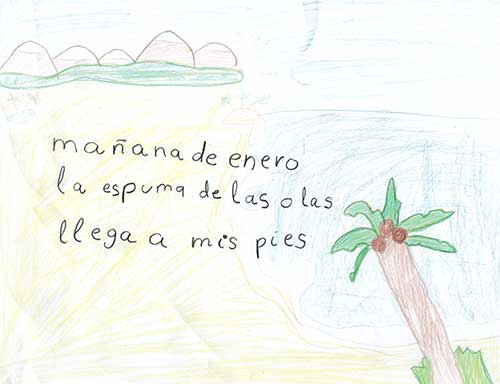 mañana de enero
la espuma de las olas
llega a mis pies